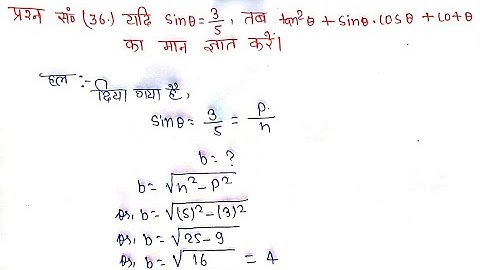 प्रश्न सं० (36.) यदि sinθ = 3/5, तब tan²θ + sinθ.cosθ + cotθ
का मान ज्ञात करें।
हल :-
दिया गया है,
sinθ = 3/5 = P/h
b = ?
b = √h² - P²
or, b = √(5)² - (3)²
or, b = √25 - 9
or, b = √16 = 4